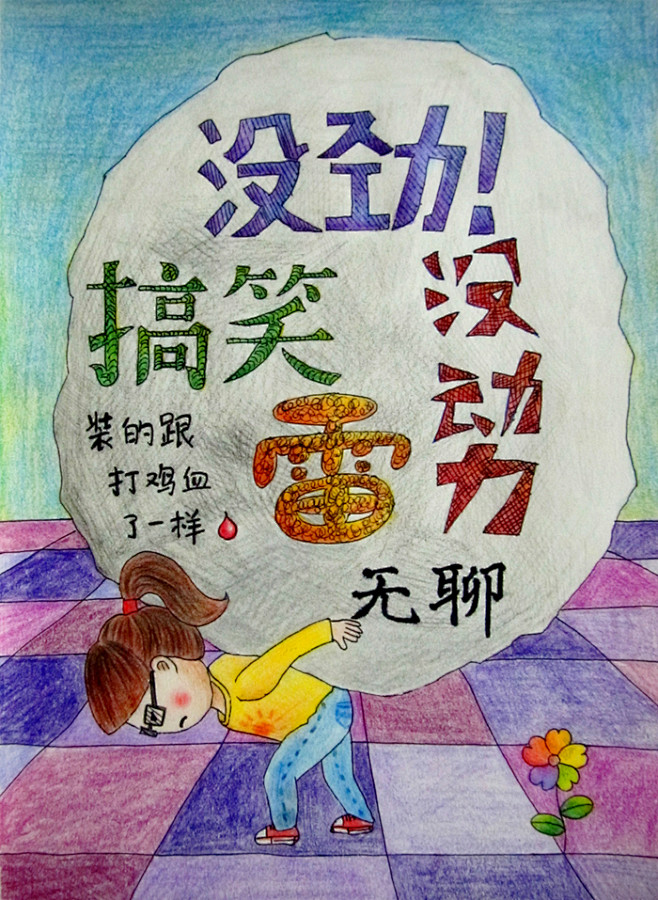 没劲!
搞笑
没动力
雷
装的跟
打鸡血
了一样
无聊